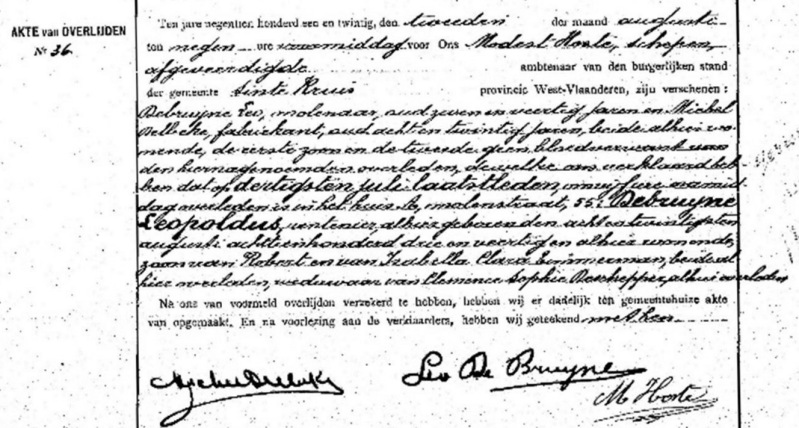 AKTE van OVERLIJDEN
Nr 36
Ten jare negentien honderd een en twintig, den tweeden der maand augusti
ten negen ure voormiddag voor Ons Modest Hoste, schepen,
afgeveerdigde ambtenaar van den burgerlijken stand
der gemeente Sinte Kruis provincie West-Vlaanderen, zijn verschenen :
Debruyne Leo, molenaar, oud zeven en veertig jaren en Michel
Delbeke, fabriekant, oud acht en twintig jaren, beide alhier wo-
nende, de eerste zoon en de tweede geen bloedverwant van
den hiernagenoemden overleden, dewelke ons verklaard heb-
ben dat op dertigsten juli laatstleden, om vijf ure namid-
dag overleden is in het huis, molenstraat, 55: Debruyne
Leopoldus, rentenier, alhier geboren den acht en twintigsten
augusti achttienhonderd drie en veertig en alhier wonende,
zoon van Robert en van Isabella Clara Timmerman, beide al-
hier overleden, weduwaar van Clemence Sophie Deschepper, alhier overleden
Na ons van voormeld overlijden verzekerd te hebben, hebben wij er dadelijk ten gemeentehuize akte
van opgemaakt. En na voorlezing aan de verklaarders, hebben wij geteekend met hen
Leo De Bruyne
M Hoste